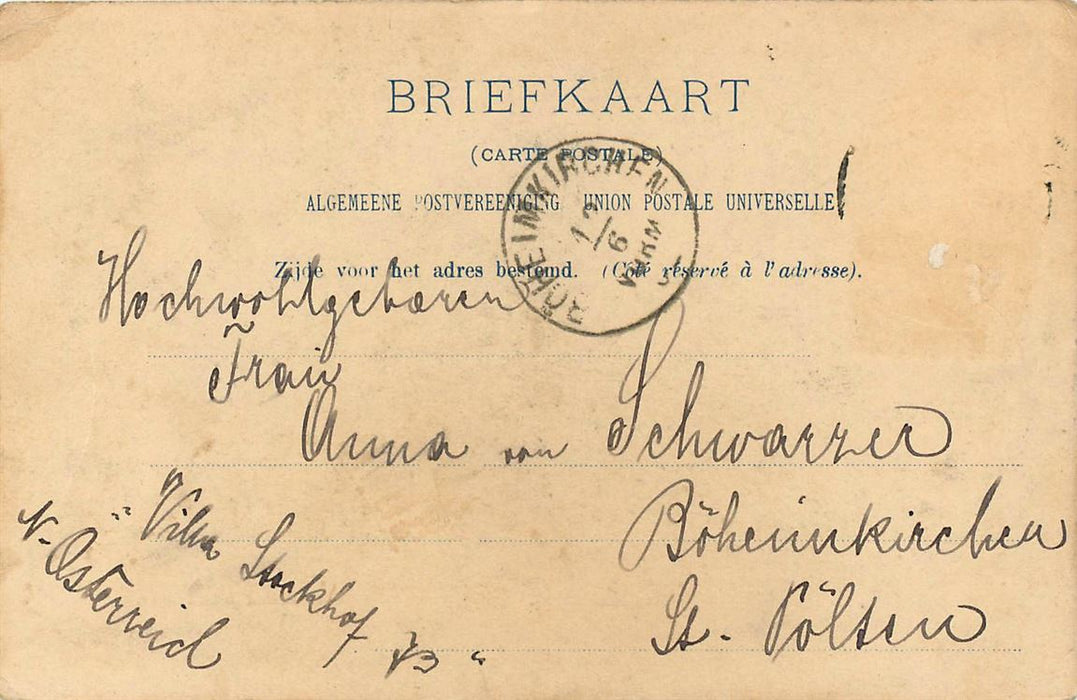 BRIEFKAART
(CARTE POSTALE)
ALGEMEENE POSTVEREENIGING UNION POSTALE UNIVERSELLE
Zijde voor het adres bestemd. (Côté réservé à l'adresse).
BÖHEIMKIRCHEN
12/6
VORM
Hochwohlgeboren
Frau
Anna von Schwarzer
Böheimkirchen
St. Pölten
" Villa Stockhof "
N. Österreich